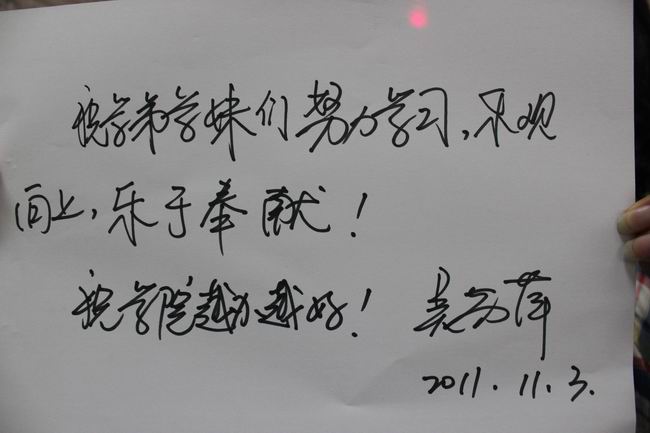 祝学弟学妹们努力学习,乐观
向上,乐于奉献!
祝学院越办越好!
2011.11.3.